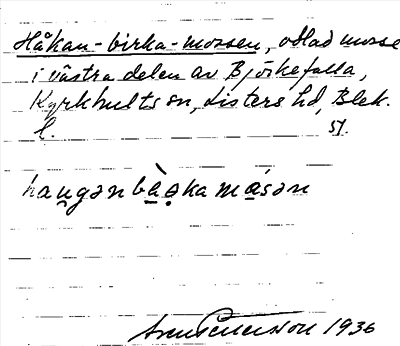 Håkan-birka-mossen, odlad mosse
i västra delen av Björkefalla,
Kyrkhults sn, Listers hd, Blek.
l. 51.
hau̯gən bæ̀ə̯ka mɑ́sən
1936